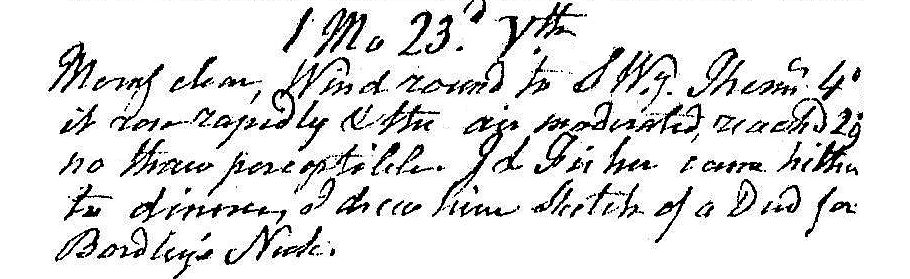 1 Mo 23.d Vth
Morng clear, Wind round to S Wy. Thermr 4°
it rose rapidly & the air moderated, reachd 29
no thaw perceptible. Jd Fisher came hither
to dinner, I drew him Sketch of a Deed for
Bordley's Neck.